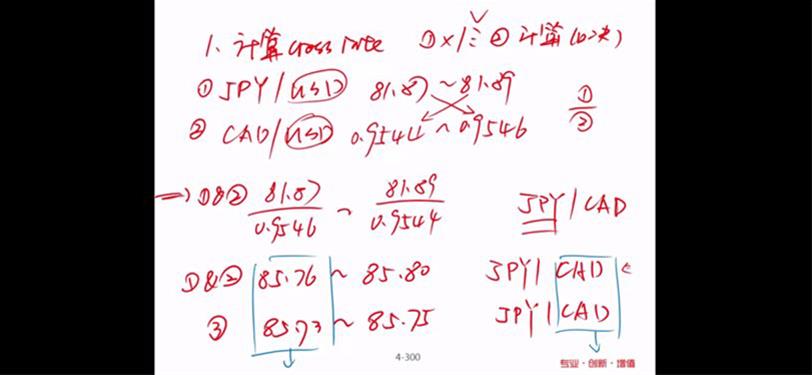 1. 计算cross rate ① ×/÷ ② 计算(10次)
① JPY/USD 81.87 ~ 81.89
② CAD/USD 0.9544 ~ 0.9546 ①/②
=> ①&② 81.87/0.9546 ~ 81.89/0.9544 JPY/CAD
①&② 85.76 ~ 85.80 JPY/CAD
③ 85.73 ~ 85.75 JPY/CAD
4-300
专业·创新·增值